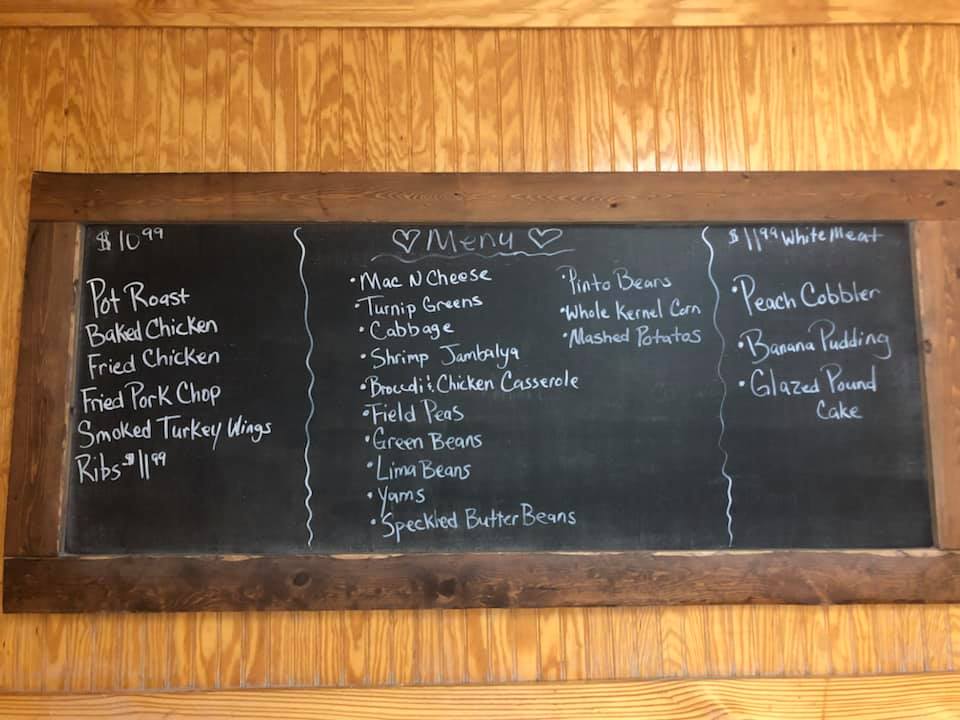 $10.99
Pot Roast
Baked Chicken
Fried Chicken
Fried Pork Chop
Smoked Turkey Wings
Ribs $11.99
♡ Menu ♡
• Mac N Cheese
• Turnip Greens
• Cabbage
• Shrimp Jambalya
• Broccoli & Chicken Casserole
• Field Peas
• Green Beans
• Lima Beans
• Yams
• Speckled Butter Beans
• Pinto Beans
• Whole Kernel Corn
• Mashed Potatos
$11.99 White Meat
• Peach Cobbler
• Banana Pudding
• Glazed Pound
Cake